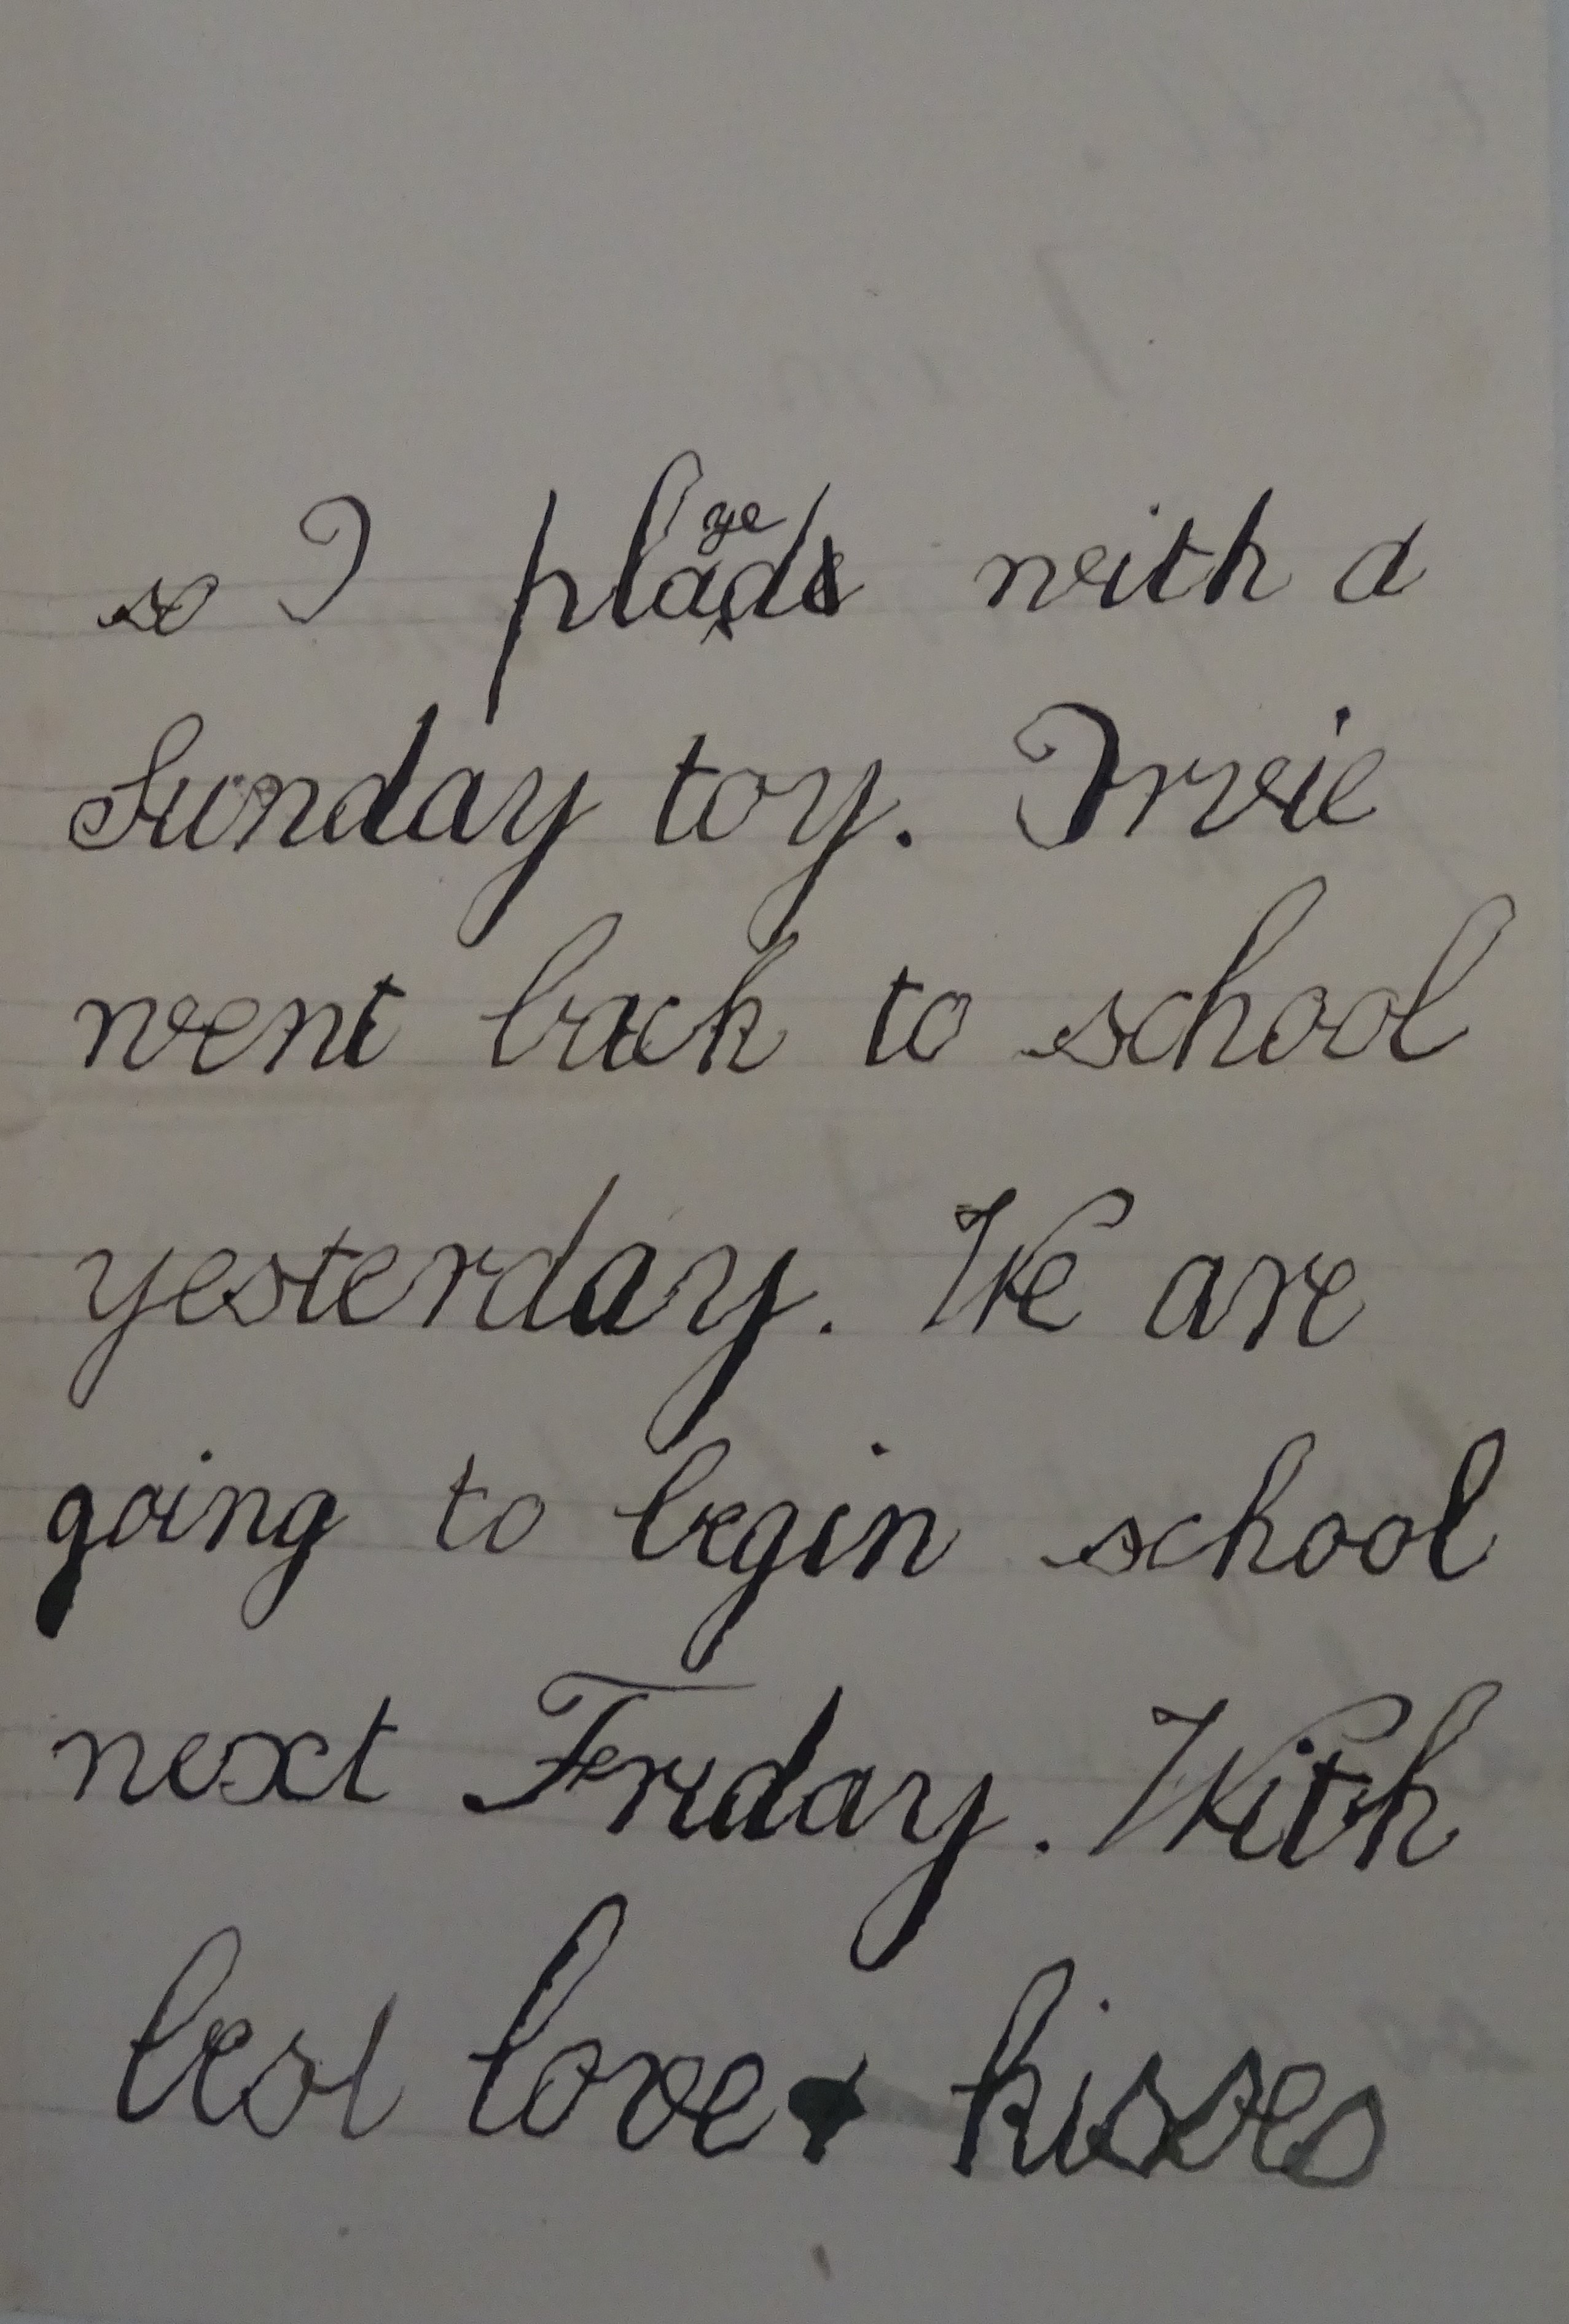 so I played with a
Sunday toy. Irvie
went back to school
yesterday. We are
going to begin school
next Friday. With
best love & kisses